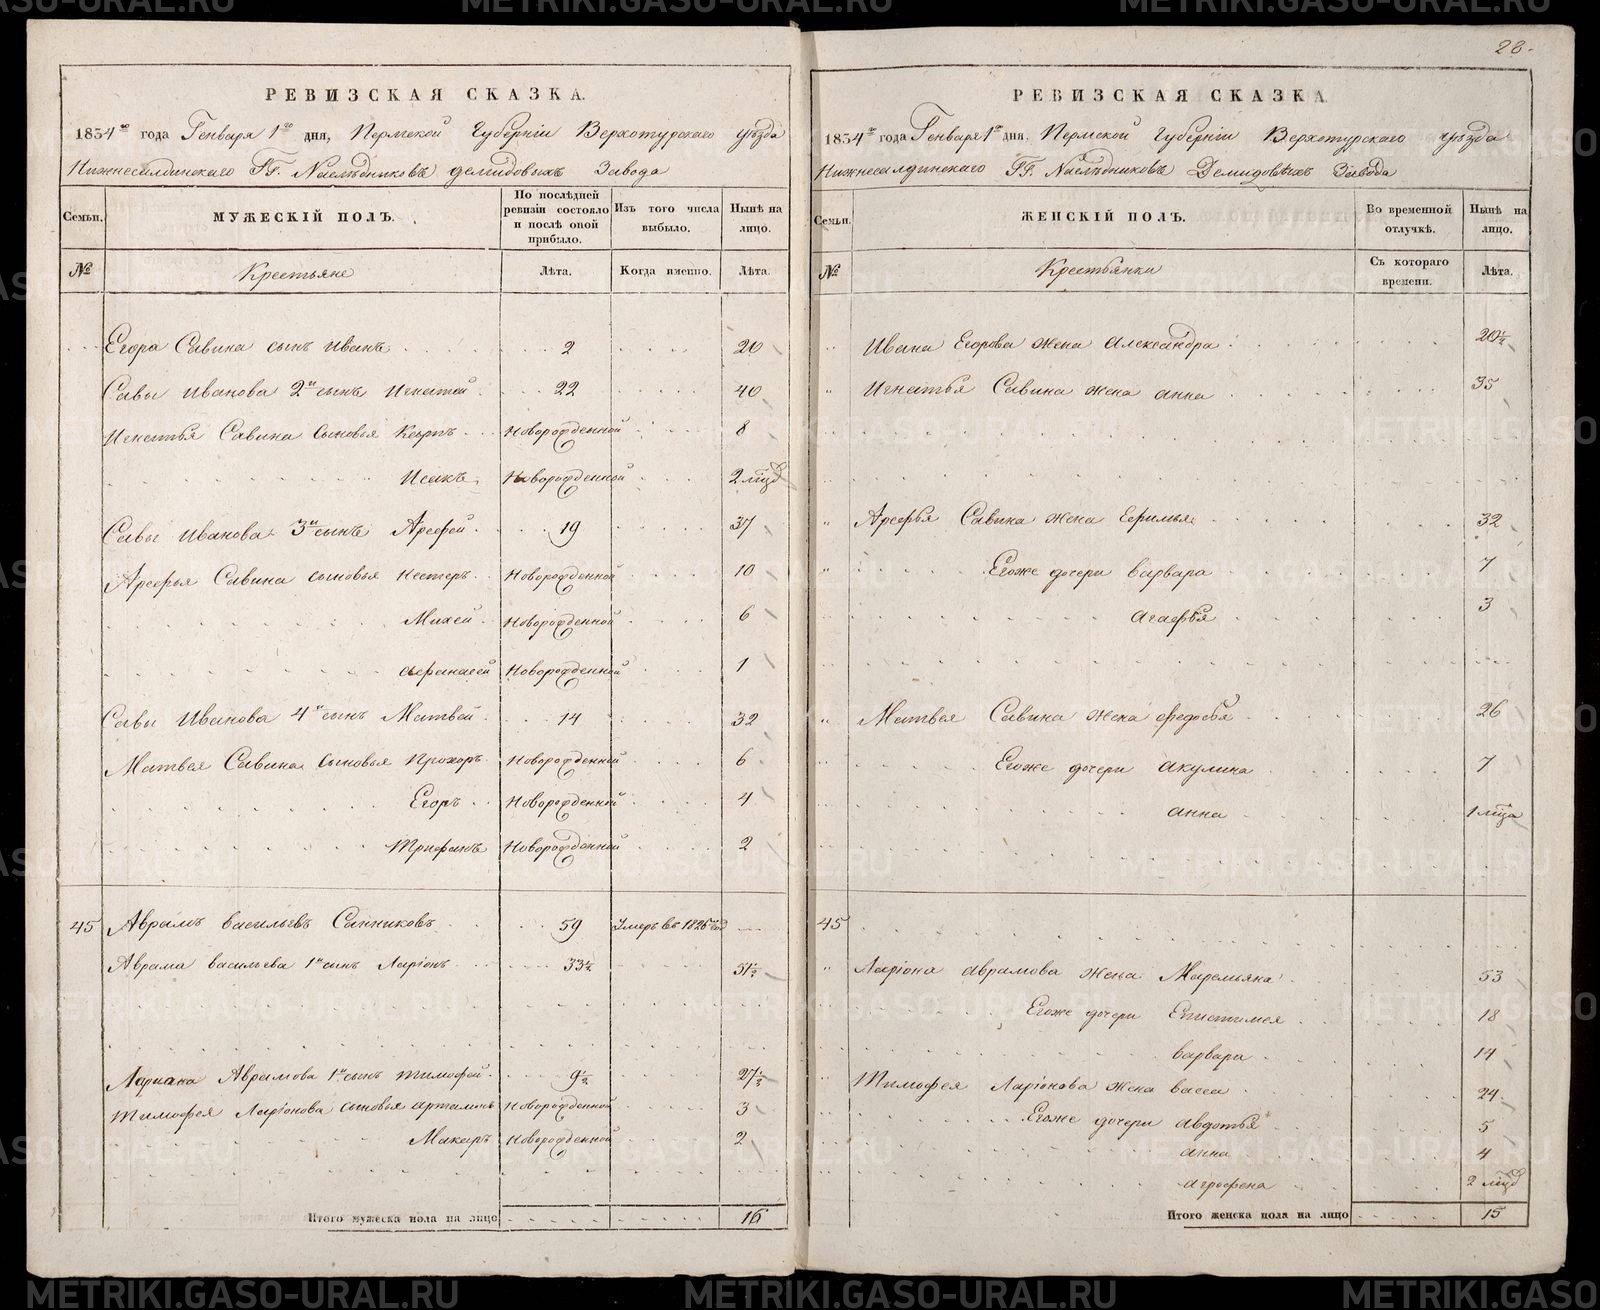 28.
РЕВИЗСКАЯ СКАЗКА.
1834го года Генваря 1го дня, Пермской Губерніи Верхотурскаго уѣзда
Нижнесалдинскаго ГГ. Наслѣдниковъ демидовыхъ Завода
Семьи. МУЖЕСКІЙ ПОЛЪ. По послѣдней ревизіи состояло и послѣ оной прибыло. Изъ того числа выбыло. Нынѣ на лицо.
№ Крестьяне Лѣта. Когда именно. Лѣта.
Егора Савина сынъ иванъ 2 20
Савы иванова 2й сынъ Игнатей 22 40
Игнатья Савина сыновья Кеырь новорожденной 8
Исакъ новорожденной 2 мцъд
Савы иванова 3й сынъ Арефей 19 37
Арефья Савина сыновья нестеръ новорожденной 10
Михей новорожденной 6
афанасей новорожденной 1
Савы иванова 4й сынъ Матвей 14 32
Матвея Савина сыновья прохоръ новорожденной 6
Егоръ новорожденной 4
трифанъ новорожденной 2
45 Аврамъ васильевъ Санниковъ 59 Умеръ въ 1826 год
Аврама васильева 1й сынъ Ларіонъ 33½ 51½
Лариана Аврамова 1й сынъ тимофей 9½ 27½
Тимофея Ларіонова сыновья артамонъ новорожденной 3
Макаръ новорожденной 2
Итого мужеска пола на лицо 16
РЕВИЗСКАЯ СКАЗКА.
1834го года Генваря 1го дня. Пермской Губерніи Верхотурскаго уѣзда
Нижнесалдинскаго ГГ. Наслѣдниковъ Демидовыхъ Завода
Семьи. ЖЕНСКІЙ ПОЛЪ. Во временной отлучкѣ. Нынѣ на лицо.
№ Крестьянки Съ котораго времени. Лѣта.
Ивана Егорова жена александра 20½
Игнатья Савина жена анна 35
Арефья Савина жена Ефимья 32
Егоже дочери варвара 7
агафья 3
Матвея Савина жена федосья 26
Егоже дочери акулина 7
анна 1 мцъа
45
Ларіона аврамова жена Маремьяна 53
Егоже дочери Епистимея 18
варвара 14
Тимофея Ларіонова жена васса 24
Егоже дочери авдотья 5
анна 4
агрофена 2 мцъд
Итого женска пола на лицо 15
METRIKI.GASO-URAL.RU